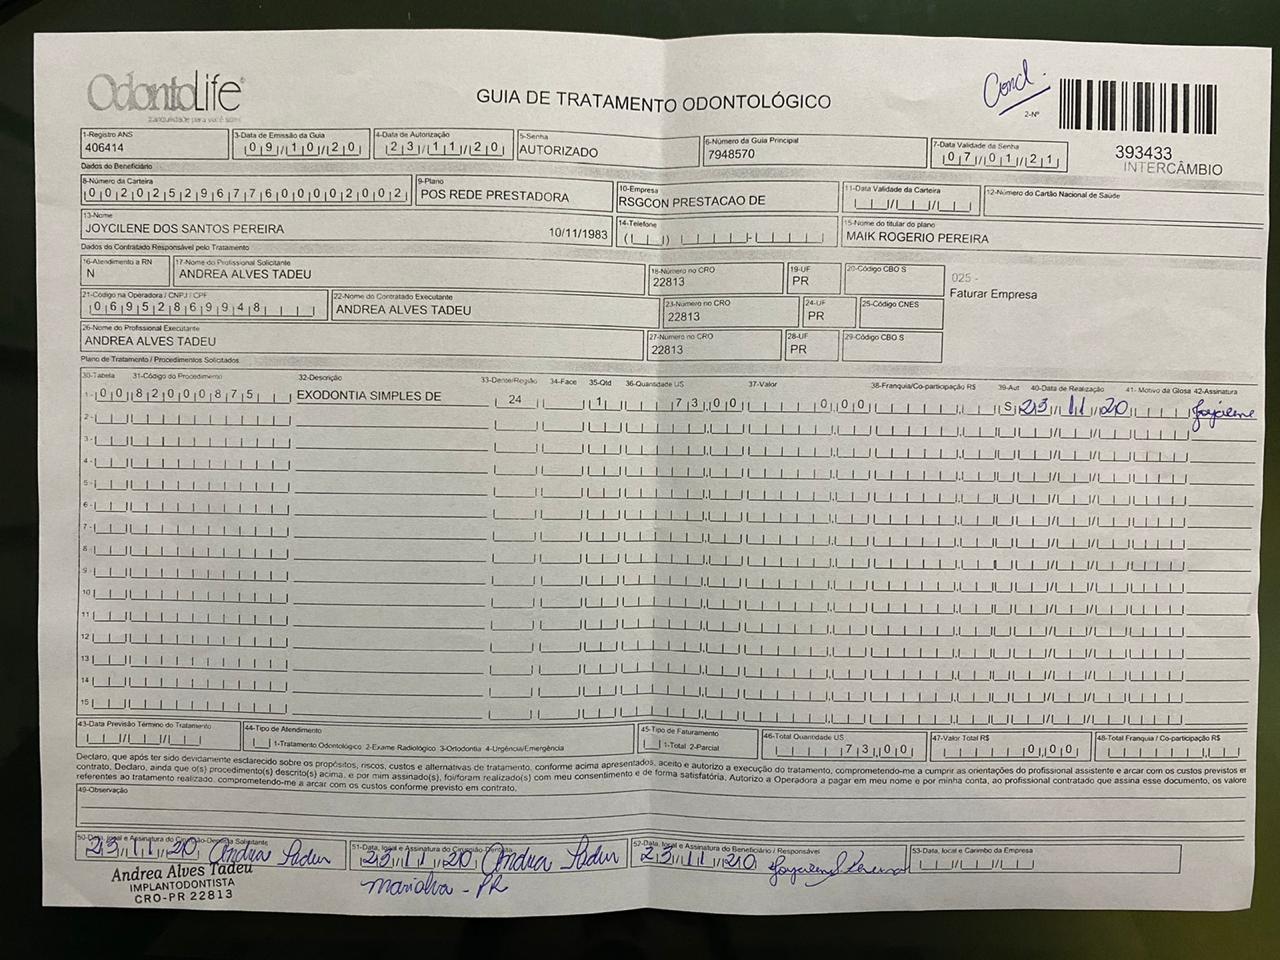 OdontoLife
tranquilidade para você sorrir
GUIA DE TRATAMENTO ODONTOLÓGICO
Concl.
2-Nº
393433
INTERCÂMBIO
1-Registro ANS
406414
3-Data de Emissão da Guia
09/10/20
4-Data de Autorização
23/11/20
5-Senha
AUTORIZADO
6-Número da Guia Principal
7948570
7-Data Validade da Senha
07/01/21
Dados do Beneficiário
8-Número da Carteira
00202529677600002002
9-Plano
POS REDE PRESTADORA
10-Empresa
RSGCON PRESTACAO DE
11-Data Validade da Carteira
12-Número do Cartão Nacional de Saúde
13-Nome
JOYCILENE DOS SANTOS PEREIRA 10/11/1983
14-Telefone
15-Nome do titular do plano
MAIK ROGERIO PEREIRA
Dados do Contratado Responsável pelo Tratamento
16-Atendimento a RN
N
17-Nome do Profissional Solicitante
ANDREA ALVES TADEU
18-Número no CRO
22813
19-UF
PR
20-Código CBO S
025 -
Faturar Empresa
21-Código na Operadora / CNPJ / CPF
06952869948
22-Nome do Contratado Executante
ANDREA ALVES TADEU
23-Número no CRO
22813
24-UF
PR
25-Código CNES
26-Nome do Profissional Executante
ANDREA ALVES TADEU
27-Número no CRO
22813
28-UF
PR
29-Código CBO S
Plano de Tratamento / Procedimentos Solicitados
30-Tabela 31-Código do Procedimento 32-Descrição 33-Dente/Região 34-Face 35-Qtd 36-Quantidade US 37-Valor 38-Franquia/Co-participação R$ 39-Aut 40-Data de Realização 41- Motivo da Glosa 42-Assinatura
1- 00 82000875 EXODONTIA SIMPLES DE 24 1 73,00 0,00 S 23/11/20
2-
3-
4-
5-
6-
7-
8-
9-
10
11
12
13
14
15
43-Data Previsão Término do Tratamento
44-Tipo de Atendimento
1-Tratamento Odontológico 2-Exame Radiológico 3-Ortodontia 4-Urgência/Emergência
45-Tipo de Faturamento
1-Total 2-Parcial
46-Total Quantidade US
73,00
47-Valor Total R$
0,00
48-Total Franquia / Co-participação R$
Declaro, que após ter sido devidamente esclarecido sobre os propósitos, riscos, custos e alternativas de tratamento, conforme acima apresentados, aceito e autorizo a execução do tratamento, comprometendo-me a cumprir as orientações do profissional assistente e arcar com os custos previstos em
contrato. Declaro, ainda que o(s) procedimento(s) descrito(s) acima, e por mim assinado(s), foi/foram realizado(s) com meu consentimento e de forma satisfatória. Autorizo a Operadora a pagar em meu nome e por minha conta, ao profissional contratado que assina esse documento, os valore
referentes ao tratamento realizado, comprometendo-me a arcar com os custos conforme previsto em contrato.
49-Observação
50-Data, local e Assinatura do Cirurgião-Dentista Solicitante
23/11/20 Andrea Tadeu
51-Data, local e Assinatura do Cirurgião-Dentista
23/11/20 Andrea Tadeu
52-Data, local e Assinatura do Beneficiário / Responsável
23/11/20
53-Data, local e Carimbo da Empresa
Andrea Alves Tadeu
IMPLANTODONTISTA
CRO-PR 22813
Marialva - PR